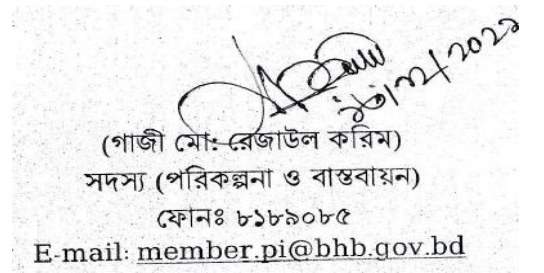 (গাজী মো: রেজাউল করিম)
সদস্য (পরিকল্পনা ও বাস্তবায়ন)
ফোনঃ ৮১৮৯০৮৫
E-mail: member.pi@bhb.gov.bd